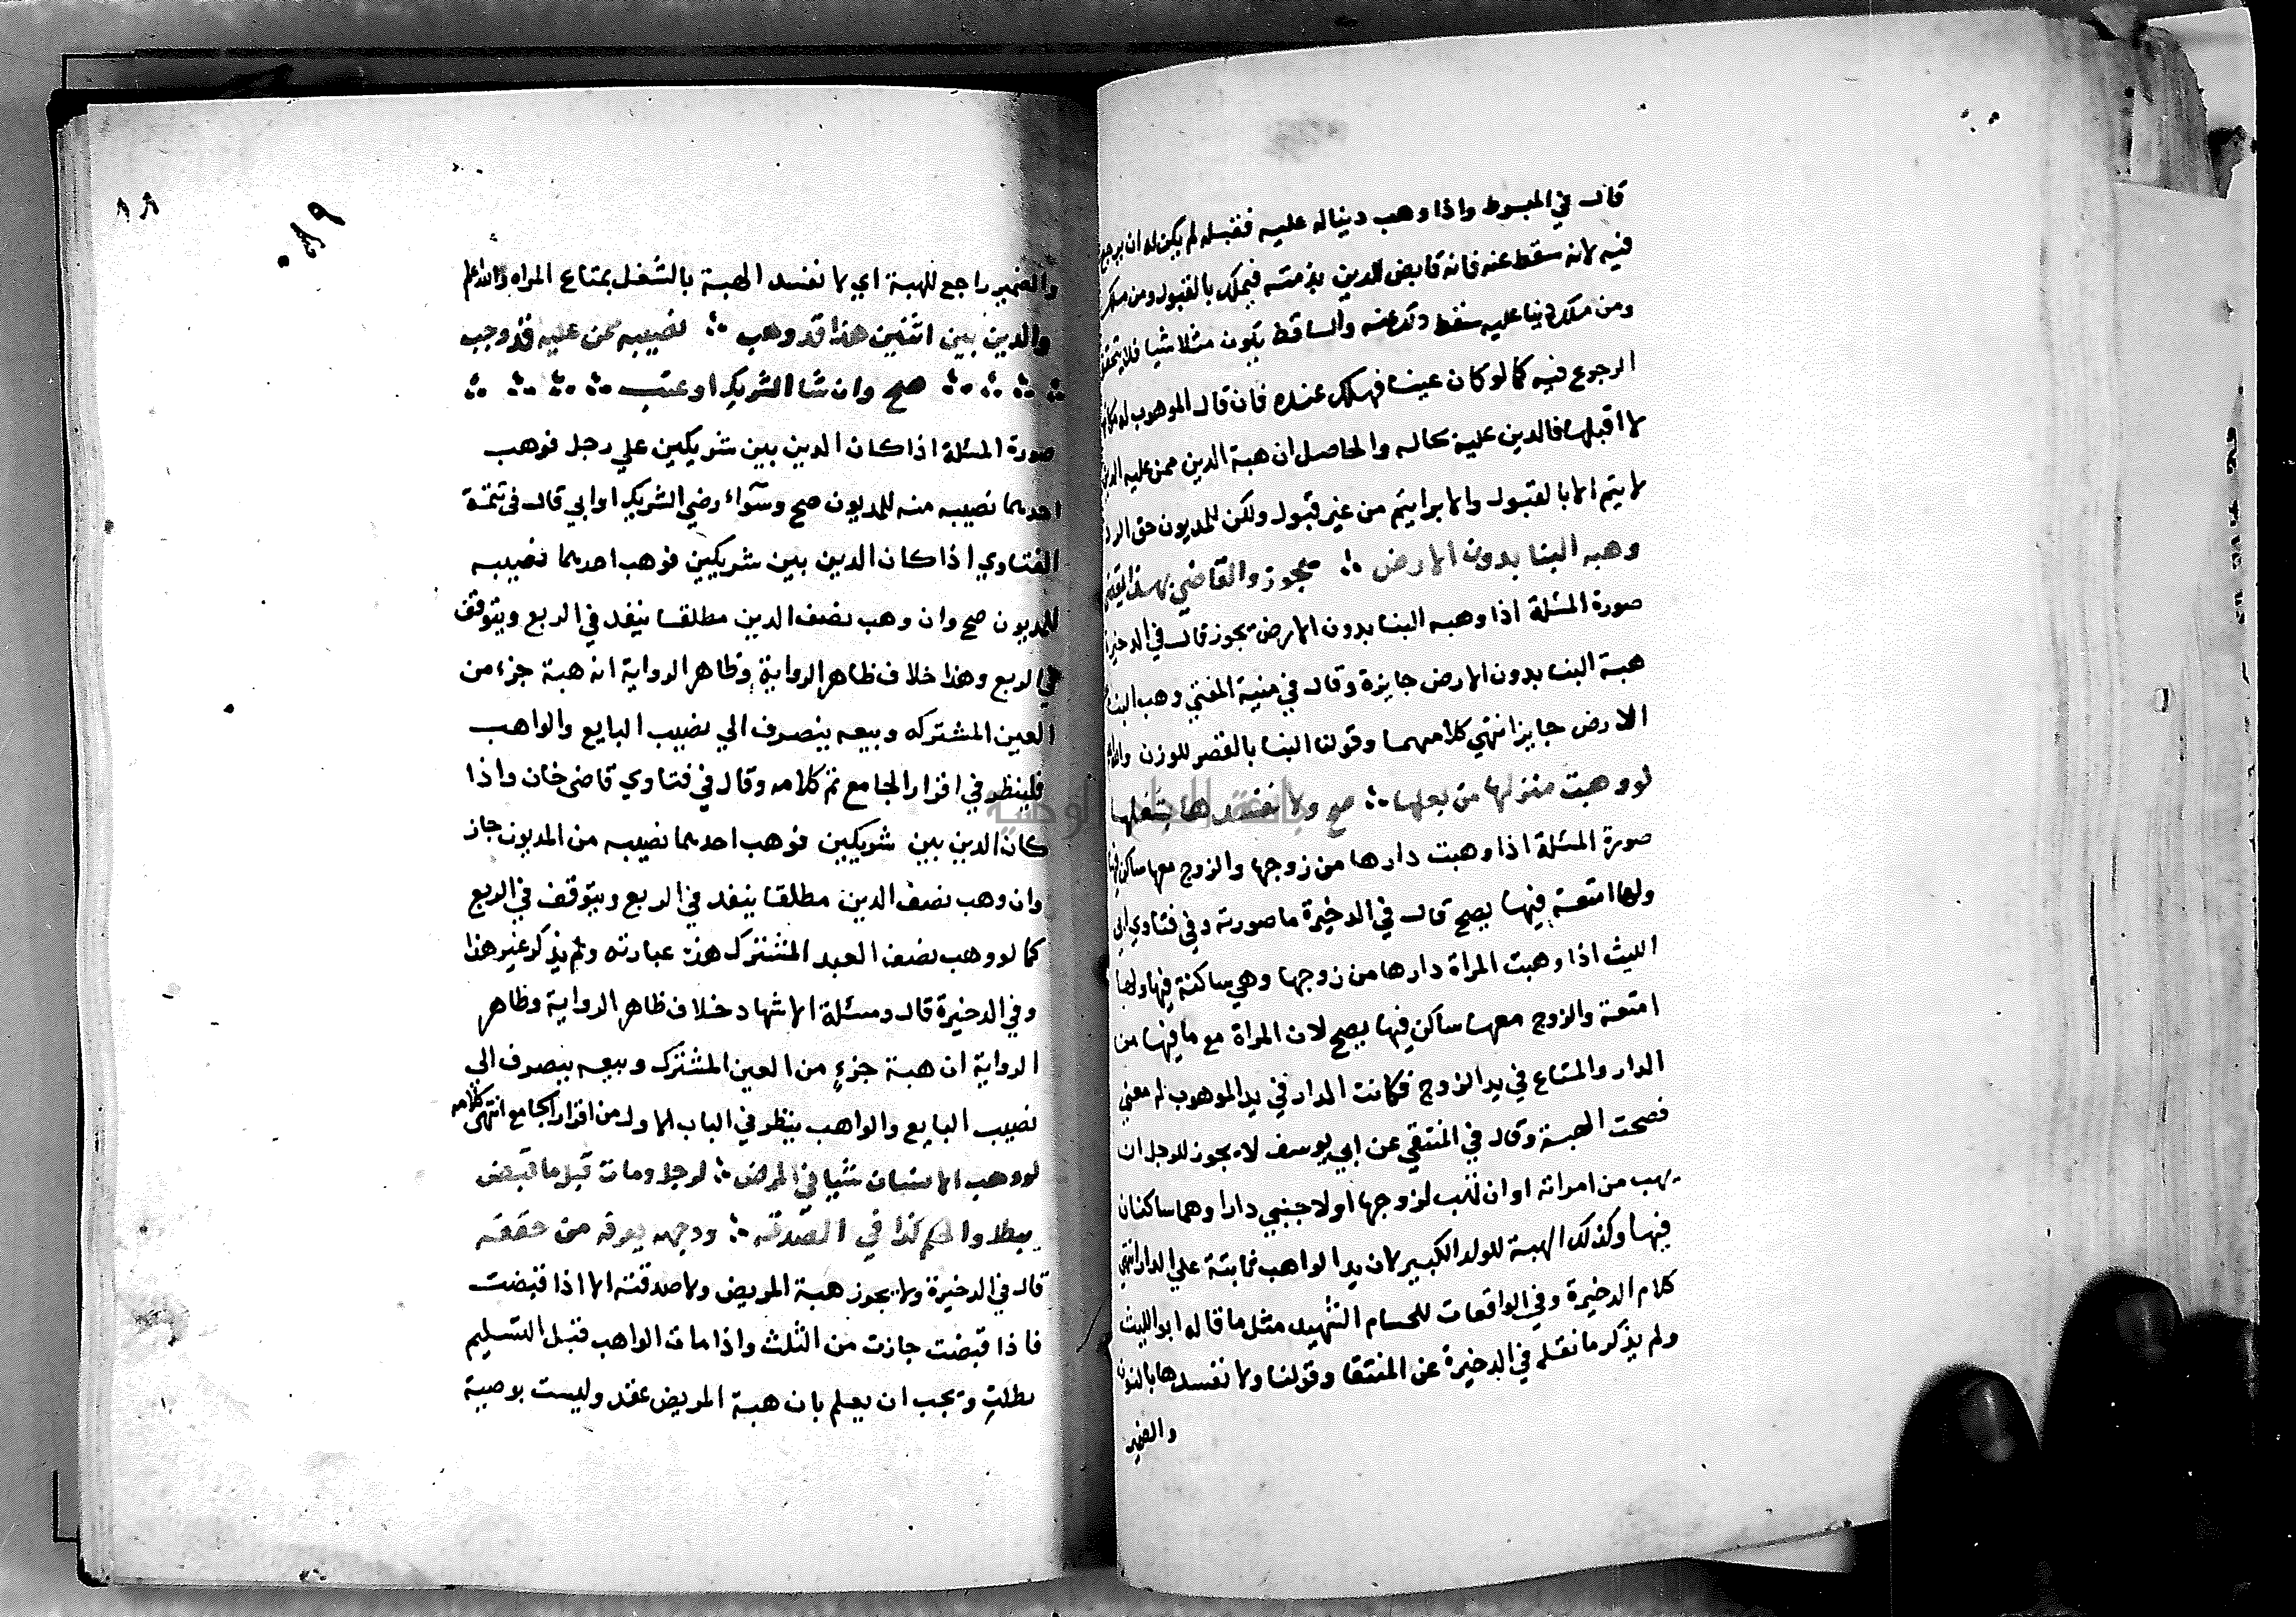 قال في المبسوط واذا وهب ديناله عليه فقبله لم يكن له ان يرجع
فيه لانه سقط عنه فانه قابض للدين بذمته فيملكه بالقبول ومن ملك
ومن ملك دينا عليه سقط ذلك عنه والساقط يكون متلاشيا فلا يتحقق
الرجوع فيه كما لو كان عينا فهلك عنده فان قال الموهوب له مكانه
لا اقبلها فالدين عليه بحاله والحاصل ان هبة الدين ممن عليه الدين
لا يتم الا بالقبول والابرا يتم من غير قبول ولكن للمديون حق الرد
وهبه البنا بدون الارض ∴ يجوز والقاضي بهذا يقضي
صورة المسئلة اذا وهبه البنا بدون الارض يجوز قال في الدخيرة
هبة البنا بدون الارض جايزة وقال في منية المفتي وهب البنا
الارض جايز انتهي كلامهما وقولنا البنا بالقصر للوزن والله
لو وهبت منزلها من بعلها ∴ صح ولا نفسدها بشغلها
صورة المسئلة اذا وهبت دارها من زوجها والزوج معها ساكن فيها
ولها امتعة فيها يصح قال في الدخيرة ما صورته وفي فتاوي ابي
الليث اذا وهبت المراة دارها من زوجها وهي ساكنة فيها ولها
امتعة والزوج معها ساكن فيها يصح لان المراة مع ما فيها من
الدار والمتاع في يد الزوج فكانت الدار في يد الموهوب له معني
فصحت الهبة وقال في المنتقي عن ابي يوسف لا يجوز للرجل ان
يهب من امراته او ان تهب لزوجها او لاجنبي دارا وهما ساكنان
فيها وكذلك الهبة للولد الكبير لان يد الواهب ثابتة علي الدار انتهي
كلام الدخيرة وفي الواقعات للحسام الشهيد مثل ما قاله ابو الليث
ولم يذكر ما نقله في الدخيرة عن المنتقا وقولنا ولا نفسدها بالنون
والضمير
٨٨
والضمير راجع للهبة اي لا نفسد الهبة بالشغل بمتاع المراه والله اعلم
والدين بين اثنين هذا قد وهب ∴ نصيبه ممن عليه قد وجب
صح وان شا الشريك او عتب
صورة المسئلة اذا كان الدين بين شريكين علي رجل فوهب
احدهما نصيبه منه للمديون صح وسواء رضي الشريك او ابي قال في تتمة
الفتاوي اذا كان الدين بين شريكين فوهب احدهما نصيبه
للمديون صح وان وهب نصف الدين مطلقا ينفد في الربع ويتوقف
في الربع وهذا خلاف ظاهر الرواية وظاهر الرواية انه هبة جزء من
العين المشتركه وبيعه ينصرف الي نصيب البايع والواهب
فلينظر في اقرار الجامع تم كلامه وقال في فتاوي قاضي خان واذا
كان الدين بين شريكين فوهب احدهما نصيبه من المديون جاز
وان وهب نصف الدين مطلقا ينفد في الربع ويتوقف في الربع
كما لو وهب نصف العبد المشترك هذه عبارته ولم يذكر غير هذا
وفي الدخيرة قال ومسئلة الاشهاد خلاف ظاهر الرواية وظاهر
الرواية ان هبة جزء من العين المشترك وبيعه ينصرف الي
نصيب البايع والواهب ينظر في الباب الاول من اقرار الجامع انتهي كلامه
لو وهب الانسان شيا في المرض ∴ لرجل ومات قبل ما قبض
يبطل والحكم كذا في الصدقه ∴ ووجهه يعرفه من حققه
قال في الدخيرة ولا يجوز هبة المريض ولا صدقته الا اذا قبضت
فاذا قبضت جازت من الثلث واذا مات الواهب قبل التسليم
بطلت ويجب ان يعلم بان هبة المريض عقد وليست بوصية